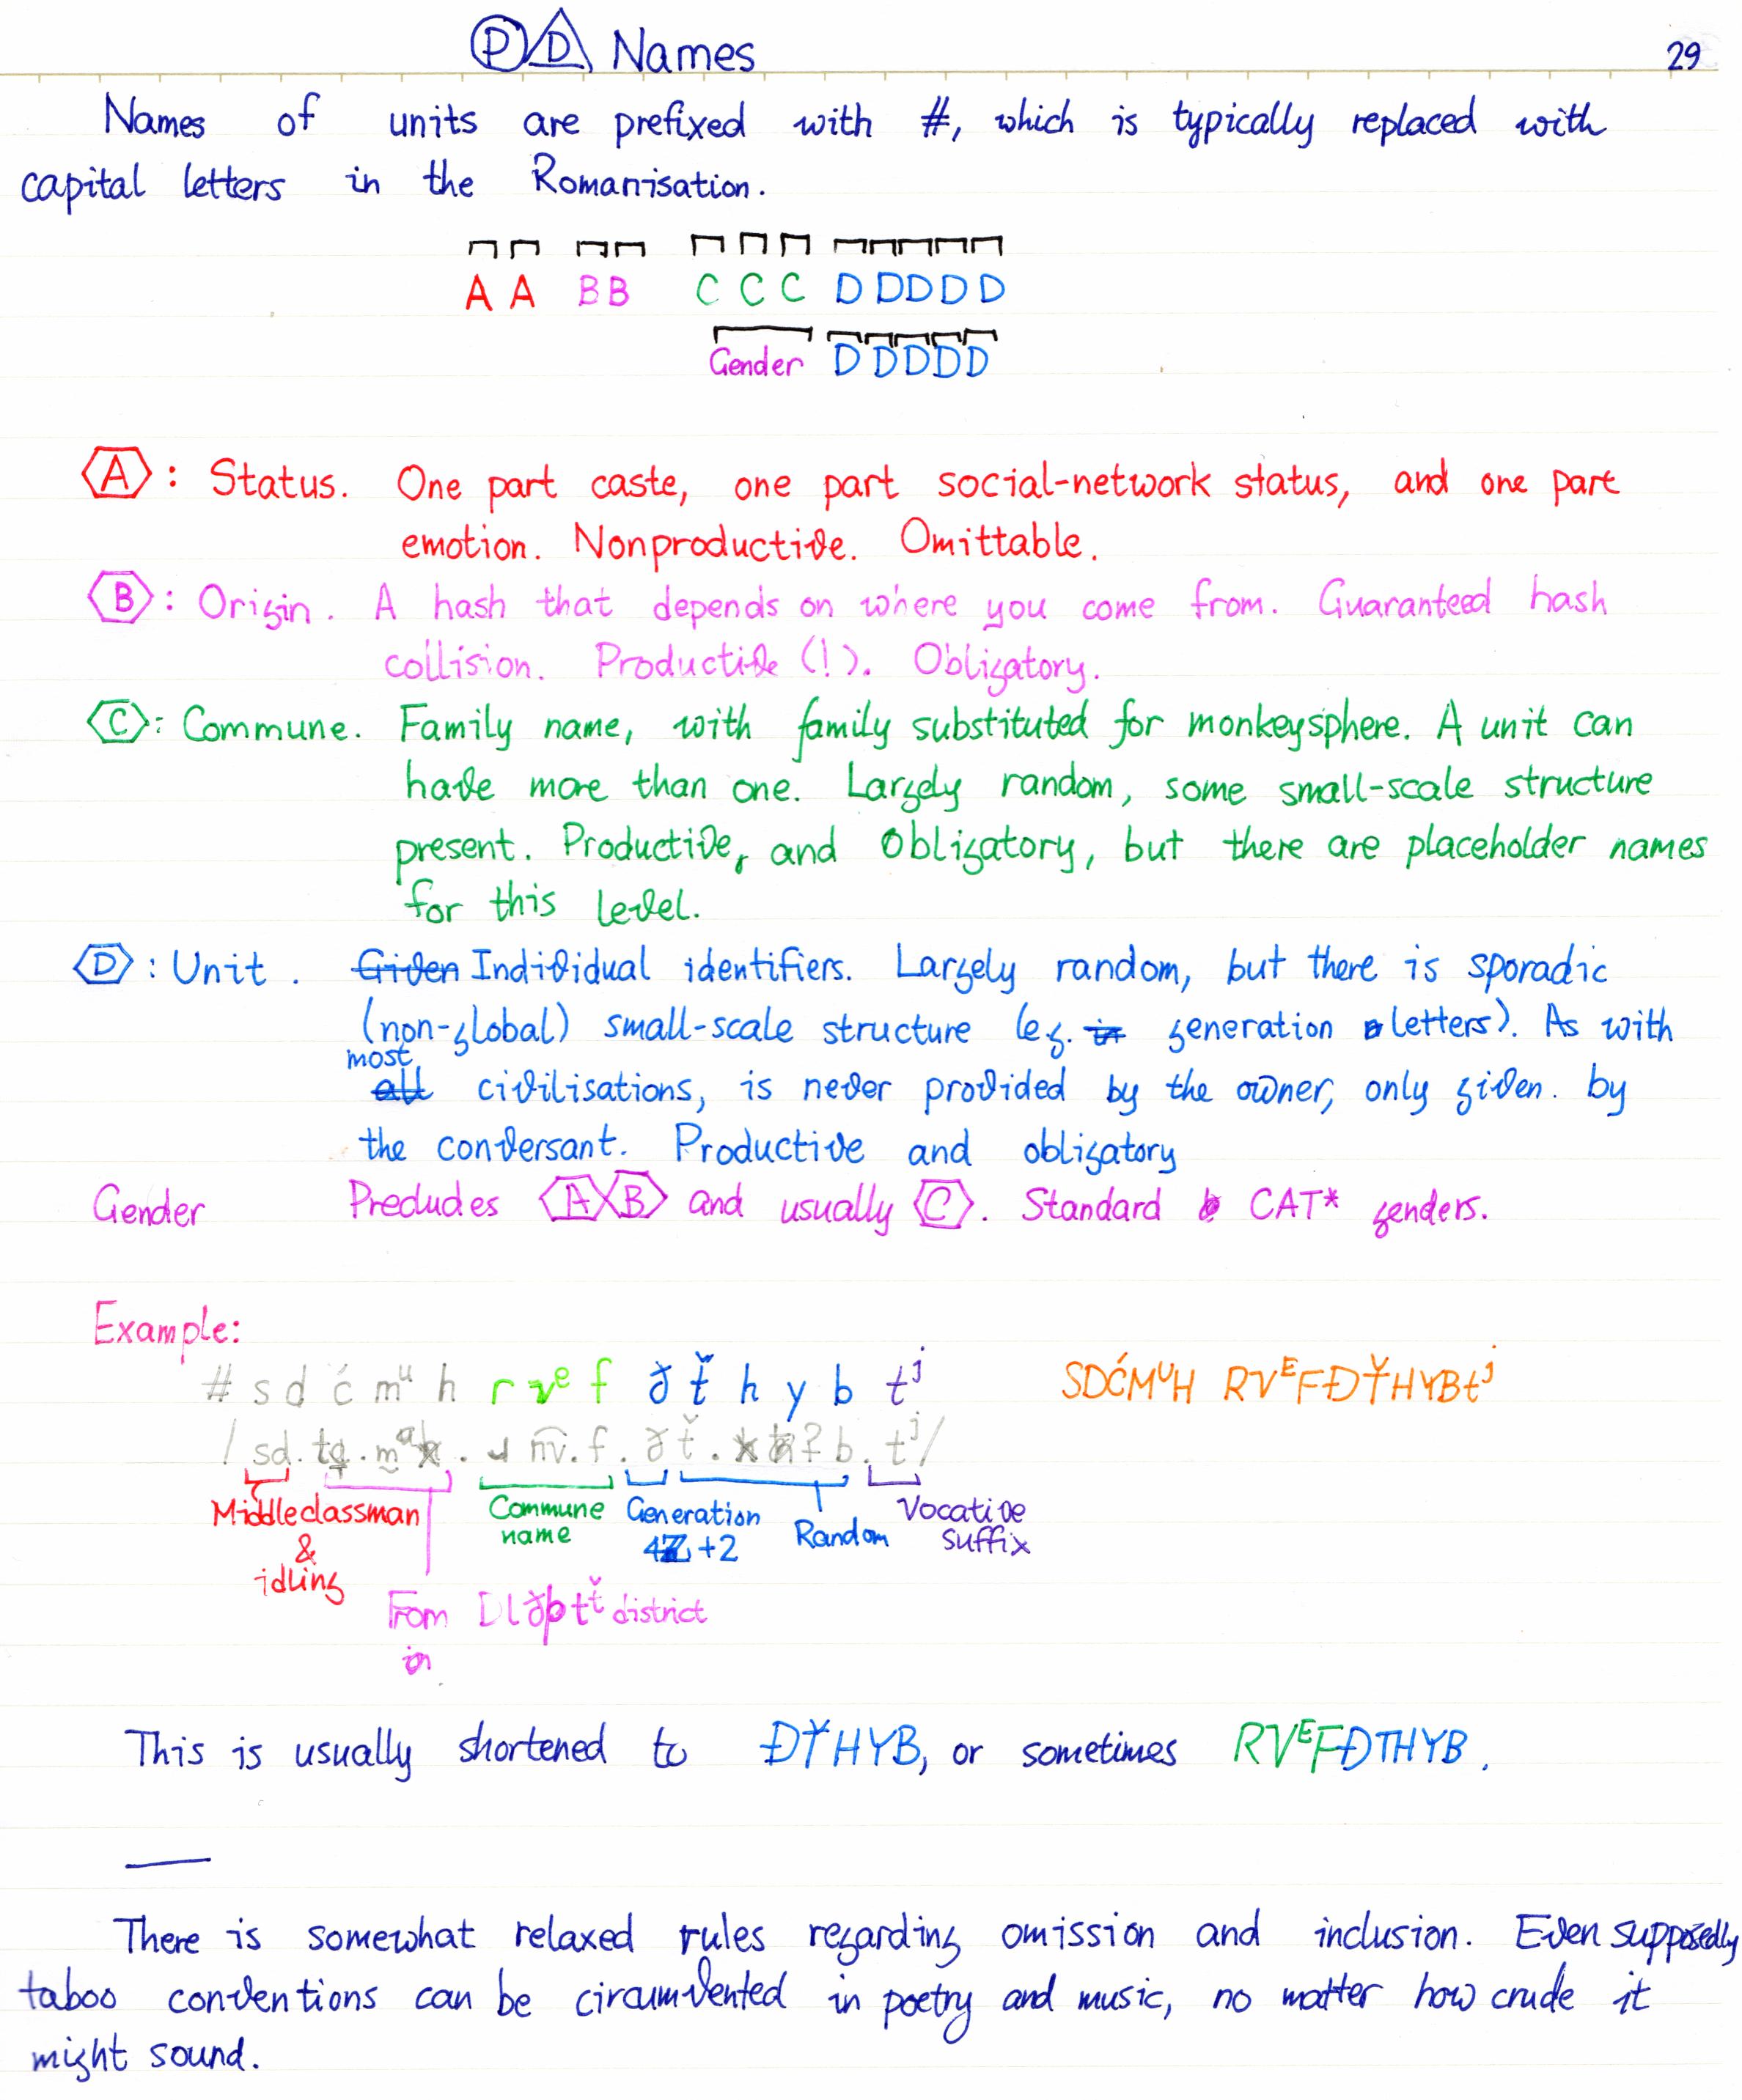 Ⓟ D Names 29
Names of units are prefixed with #, which is typically replaced with
capital letters in the Romanisation.
A A B B C C C D D D D D
Gender D D D D D
A: Status. One part caste, one part social-network status, and one part
emotion. Nonproductive. Omittable.
B: Origin. A hash that depends on where you come from. Guaranteed hash
collision. Productive (!). Obligatory.
C: Commune. Family name, with family substituted for monkeysphere. A unit can
have more than one. Largely random, some small-scale structure
present. Productive, and Obligatory, but there are placeholder names
for this level.
D: Unit. Given Individual identifiers. Largely random, but there is sporadic
(non-global) small-scale structure (eg. in generation letters). As with
most
all civilisations, is never provided by the owner, only given. by
the conversant. Productive and obligatory
Gender Precludes A B and usually C. Standard CAT* genders.
Example:
# s d ć mᵘ h r vᵉ f ð ť h y b tʲ SDĆMᵁH RVᴱFĐŤHYBtʲ
Middleclassman Commune Generation Random Vocative
& name 4ℤ+2 suffix
idling
From district
This is usually shortened to ĐŤHYB, or sometimes RVᴱFĐTHYB.
There is somewhat relaxed rules regarding omission and inclusion. Even supposedly
taboo conventions can be circumvented in poetry and music, no matter how crude it
might sound.